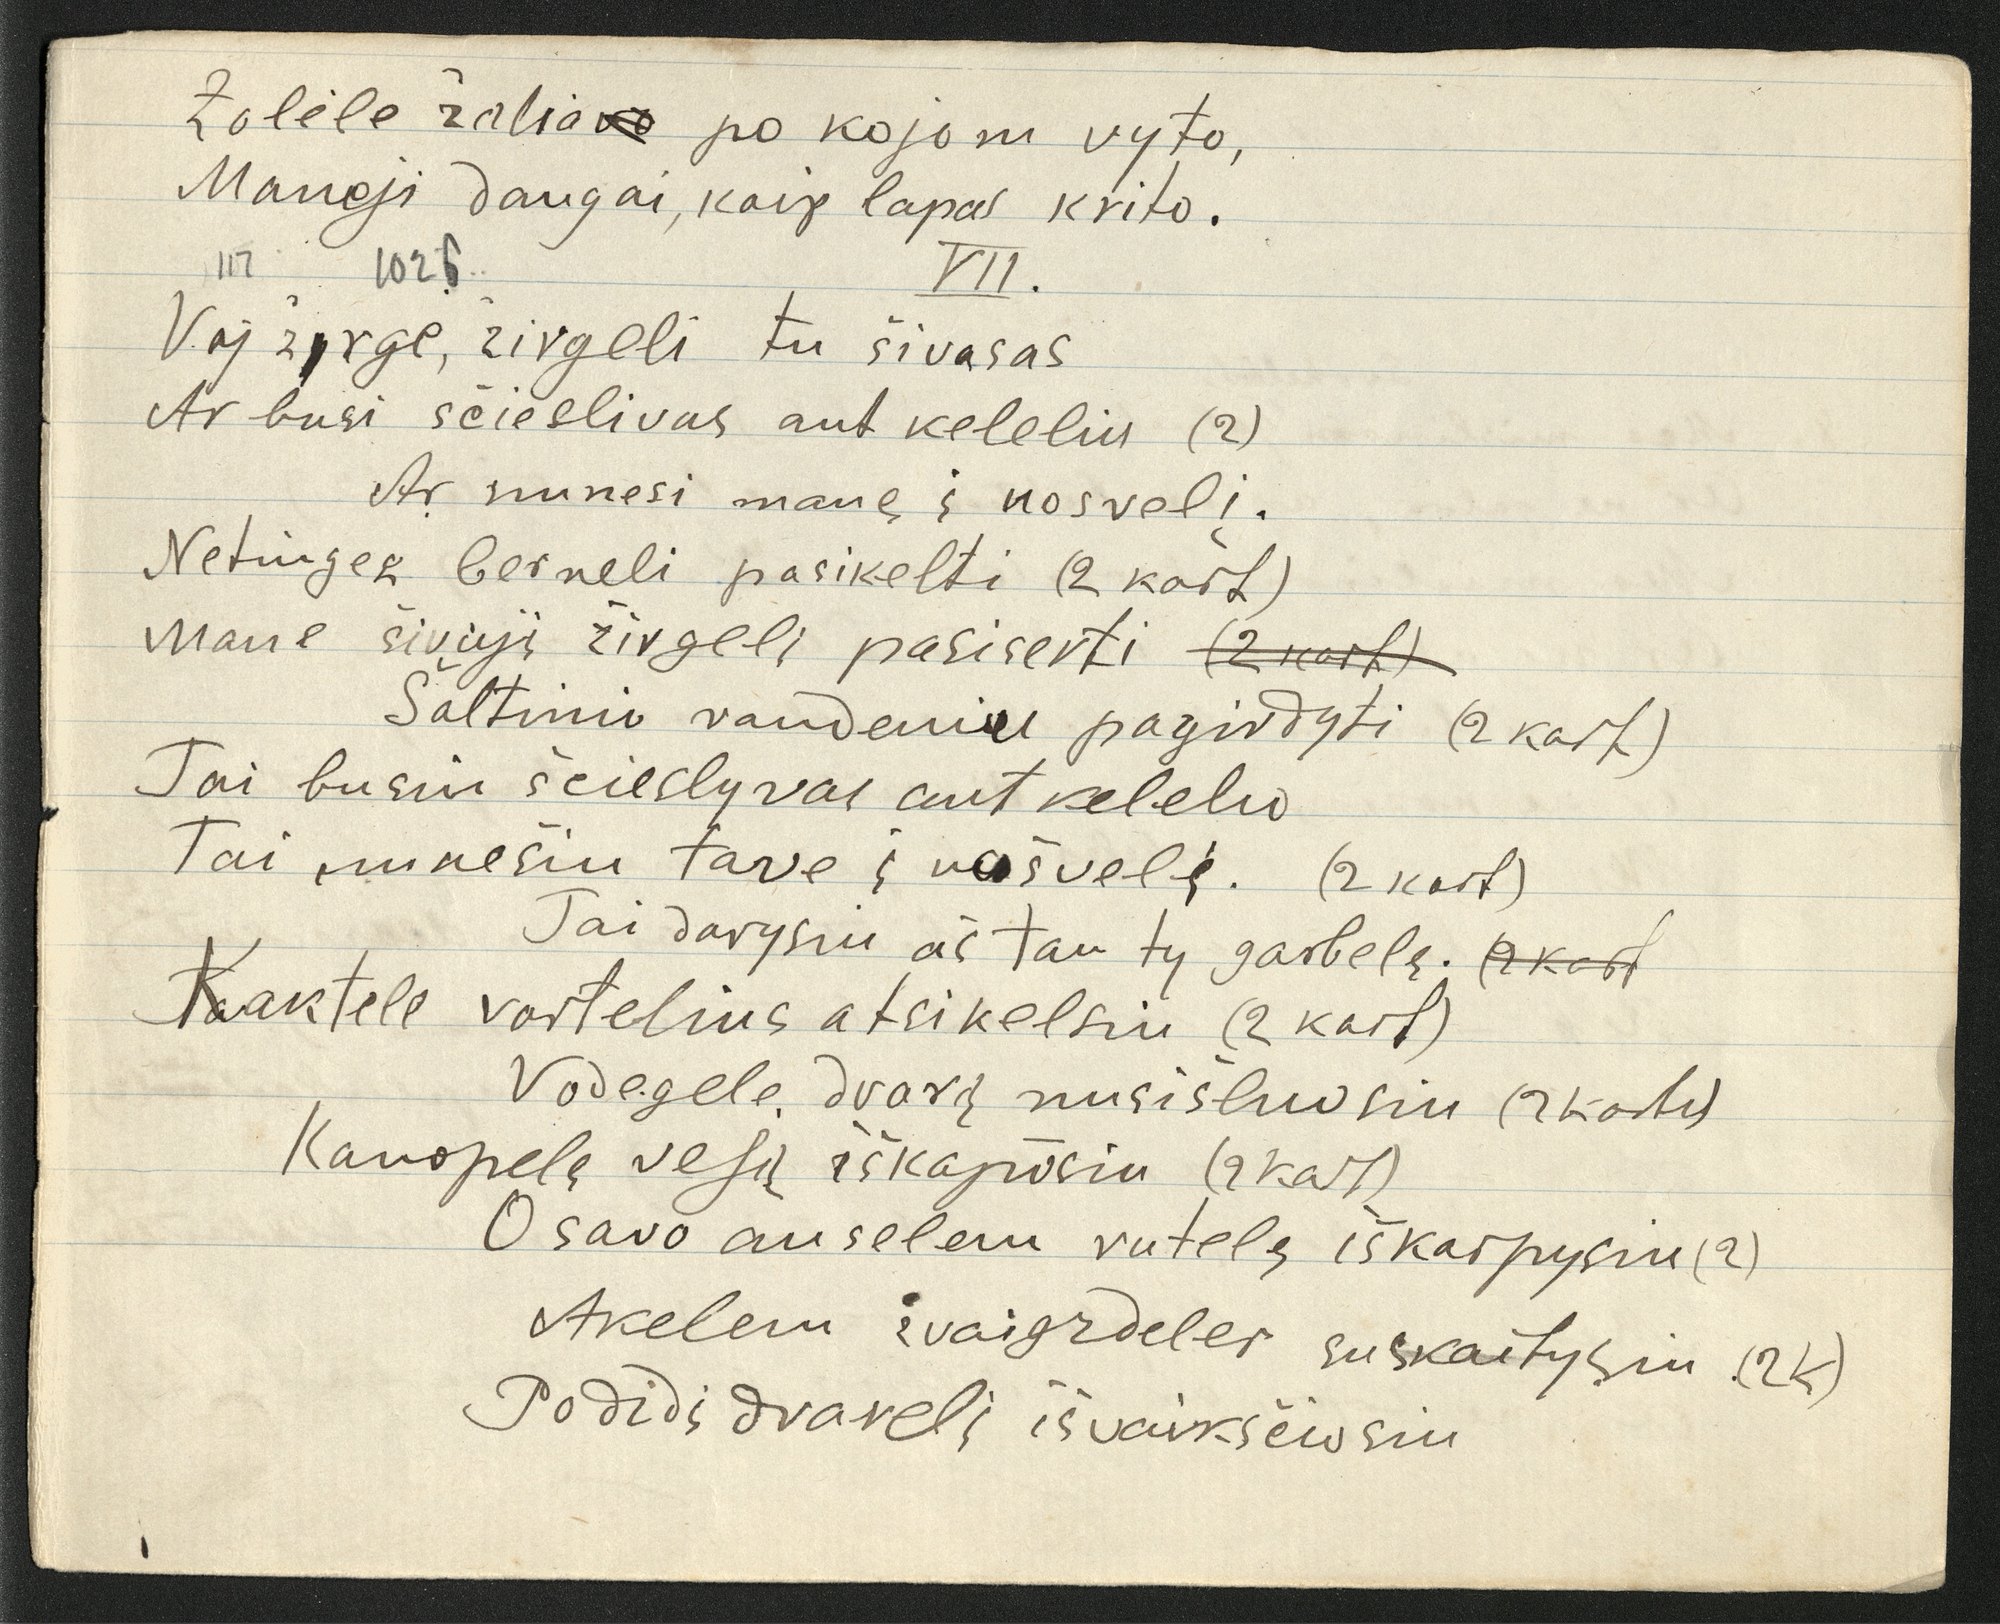 Žolele žalia po kojom vyto,
Maneji daugai, kaip lapas krito.
117 1026
VII.
Voj žirge, žirgeli tu šivasas
Ar busi ščieslivas ant keleliu (2)
Ar nunesi manę į uosvelį.
Netingek berneli pasikelti (2 kart)
Mane šivąjį žirgelį pasiserti (2 kart)
Šaltinio vandeniu pagirdyti (2 kart)
Tai busiu ščieslyvas ant kelelio
Tai nunešiu tave į uošvelį. (2 kart)
Tai darysiu aš tau tų garbelę. (2 kart
Kaktele vartelius atsikelsiu (2 kart)
Vodegele dvarą nusišluosiu (2 kartu)
Kanopelę vejų iškaposiu (2 kart)
O savo auselem rutelę iškarpysiu (2)
Akelem žvaigždeles suskaitysiu (2 k)
Podidį dvarelį išvaikščiosiu